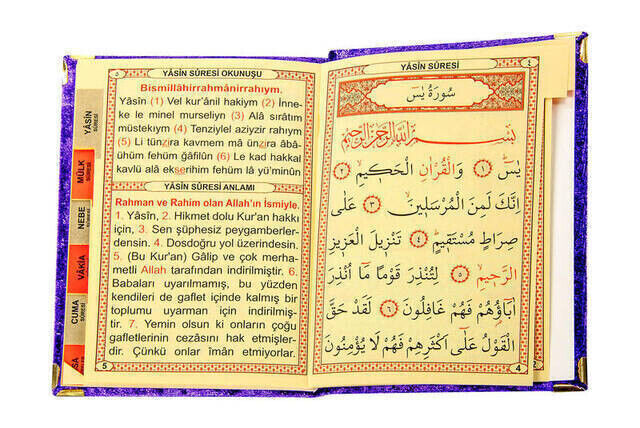 YÂSİN SÛRESİ
٤
سُورَةُ يٰسٓ
بِسْمِ اللّٰهِ الرَّحْمٰنِ الرَّحِيمِ
يٰسٓ ١ وَالْقُرْاٰنِ الْحَكِيمِۙ ٢
اِنَّكَ لَمِنَ الْمُرْسَلِينَۙ ٣ عَلٰى
صِرَاطٍ مُسْتَقِيمٍۜ ٤ تَنْزِيلَ الْعَزِيزِ
الرَّحِيمِۙ ٥ لِتُنْذِرَ قَوْمًا مَٓا اُنْذِرَ
اٰبَٓاؤُ۬هُمْ فَهُمْ غَافِلُونَ ٦ لَقَدْ حَقَّ
الْقَوْلُ عَلٰٓى اَكْثَرِهِمْ فَهُمْ لَا يُؤْمِنُونَ
4
2
٥
YÂSİN SÛRESİ OKUNUŞU
Bismillâhirrahmânirrahıym.
Yâsîn (1) Vel kur'ânil hakiym (2) İnne-
ke le minel murseliyn (3) Alâ sırâtım
müstekıym (4) Tenziylel aziyzir rahıym
(5) Li tünzira kavmem mâ ünzira âbâ-
ühüm fehüm ğâfilûn (6) Le kad hakkal
kavlü alâ ekserihim fehüm lâ yü'minûn
YÂSİN SÛRESİ ANLAMI
Rahman ve Rahim olan Allah'ın İsmiyle.
1. Yâsîn, 2. Hikmet dolu Kur'an hakkı
için, 3. Sen şüphesiz peygamberler-
densin. 4. Dosdoğru yol üzerindesin.
5. (Bu Kur'an) Gâlip ve çok merha-
metli Allah tarafından indirilmiştir. 6.
Babaları uyarılmamış, bu yüzden
kendileri de gaflet içinde kalmış bir
toplumu uyarman için indirilmiş-
tir. 7. Yemin olsun ki onların çoğu
gafletlerinin cezasını hak etmişler-
dir. Çünkü onlar îmân etmiyorlar.
5
YÂSİN
SÛRESİ
MÜLK
SÛRESİ
NEBE
SÛRESİ
VÂKIA
SÛRESİ
CUMA
SÛRESİ